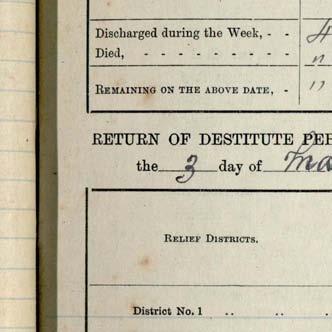 Discharged during the Week, - - 4
Died, - - - - - - - "
REMAINING ON THE ABOVE DATE, - "
RETURN OF DESTITUTE PER
the 3 day of Ma
RELIEF DISTRICTS.
District No. 1 .. .. .